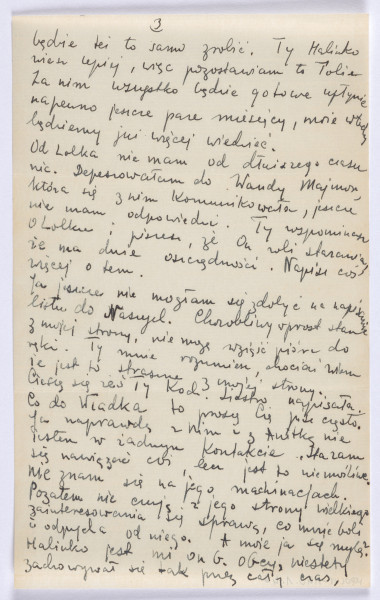 3
będzie też to samo zrobić. Ty Halinko
wiesz lepiej, więc pozostawiam to Tobie.
Za nim wszystko będzie gotowe upłynie
napewno jeszcze parę miesięcy, może wtedy
będziemy już więcej wiedzieć.
Od Lolka nie mam od dłuższego czasu
nic. Depeszowałam do Wandy
która się z nim komunikowała, jeszcze
nie mam odpowiedzi. Ty wspominasz
o Lolku i piszesz, że On robi starania,
że ma duże oszczędności. Napisz coś
więcej o tem.
Ja jeszcze nie mogłam się zdobyć na napisanie
listu do Naszych. Chorobliwy wprost stan
z mojej strony, nie mogę wziąść pióra do
ręki. Ty mnie rozumiesz, chociaż wiem
że jest to straszne z mojej strony.
Cieszę się że Ty Koch. Siostro napisałaś.
Co do Władka to proszę Cię pisz często,
Ja naprawdę z Nim i z Anitką nie
jestem w żadnym kontakcie. Staram
się nawiązać coś, lecz jest to niemożliwe.
Nie znam się na jego machinacjach.
Pozatem nie czuję z jego strony wielkiego
zainteresowania tą sprawą, co mnie boli
i odpycha od niego. A może ja się mylę?
Halinko jest mi on b. obcy, niestety
zachowywał się tak przez cały czas,